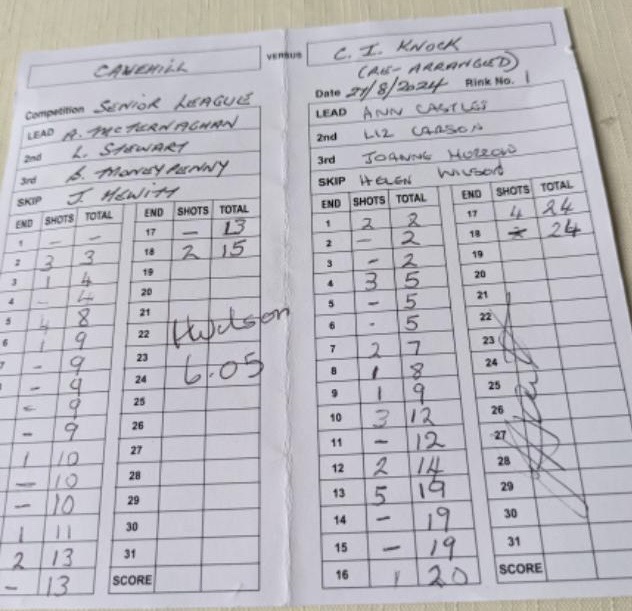 CANEHILL
VERSUS
C. I. KNOCK
(RE-ARRANGED)
Competition SENIOR LEAGUE
Date 27/8/2024 Rink No. 1
LEAD A. MCTERNAGHAN
2nd L. STEWART
3rd B. MONEYPENNY
SKIP J. HEWITT
LEAD ANN CASTLES
2nd LIZ CARSON
3rd JOANNE MORROW
SKIP HELEN WILSON
END SHOTS TOTAL
1 - -
2 3 3
3 1 4
4 - 4
5 4 8
6 1 9
7 - 9
- 9
- 9
- 9
1 10
- 10
- 10
1 11
2 13
- 13
END SHOTS TOTAL
17 - 13
18 2 15
19
20
21
22 HWilson
23
24 6.05
25
26
27
28
29
30
31
SCORE
END SHOTS TOTAL
1 2 2
2 - 2
3 - 2
4 3 5
5 - 5
6 - 5
7 2 7
8 1 8
9 1 9
10 3 12
11 - 12
12 2 14
13 5 19
14 - 19
15 - 19
16 1 20
END SHOTS TOTAL
17 4 24
18 - 24
19
20
21
22
23
24
25
26
27
28
29
30
31
SCORE